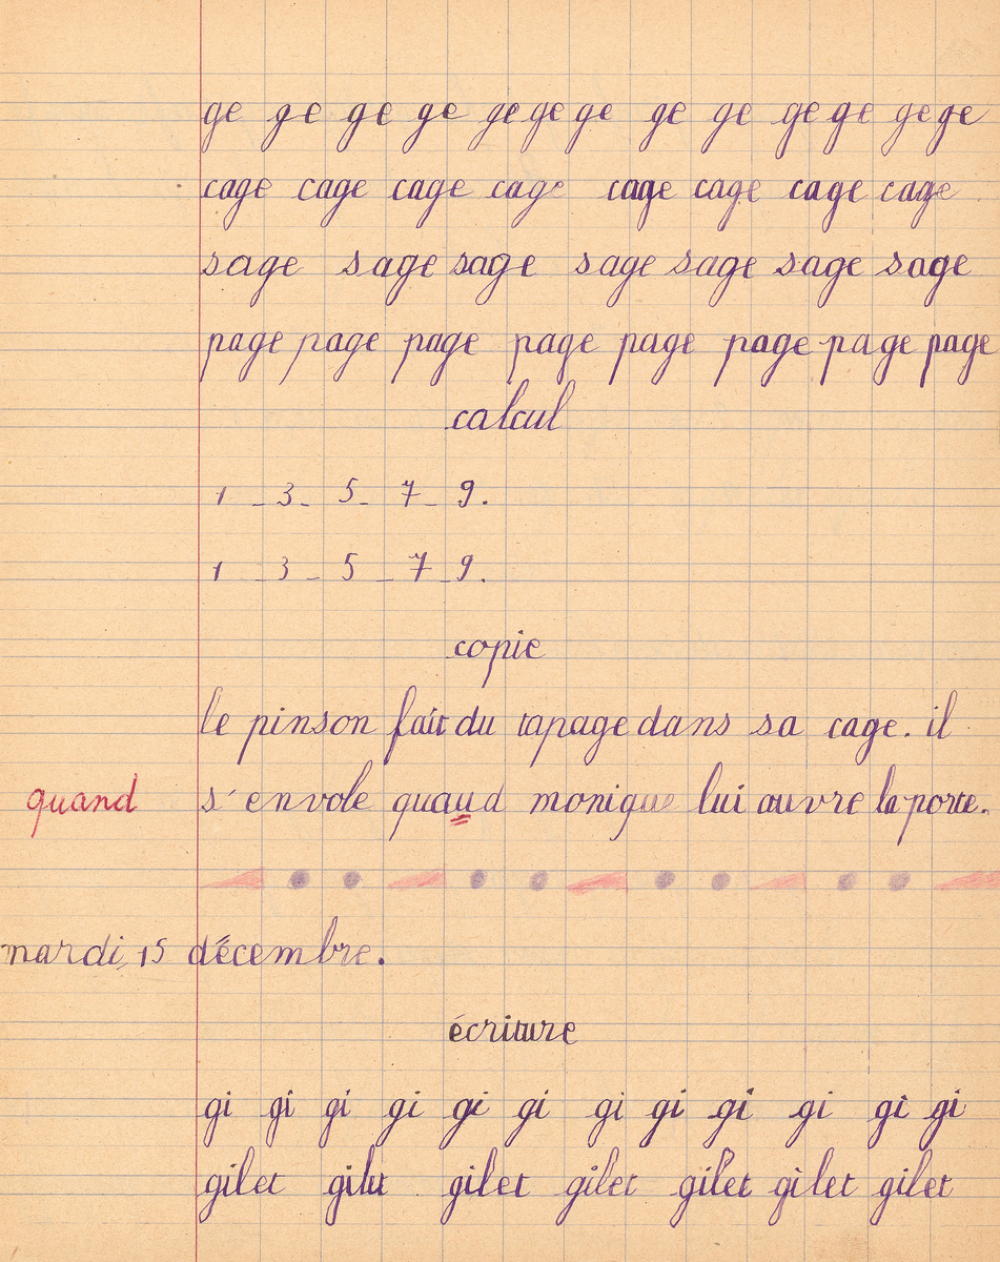 ge ge ge ge ge ge ge ge ge ge ge ge ge
cage cage cage cage cage cage cage cage
sage sage sage sage sage sage sage
page page page page page page page page
calcul
1 - 3 - 5 - 7 - 9.
1 - 3 - 5 - 7 - 9.
copie
le pinson fait du tapage dans sa cage. il
quand s'envole quaud monique lui ouvre la porte.
mardi 15 décembre.
écriture
gi gi gi gi gi gi gi gi gi gi gi gi
gilet gilet gilet gilet gilet gilet gilet